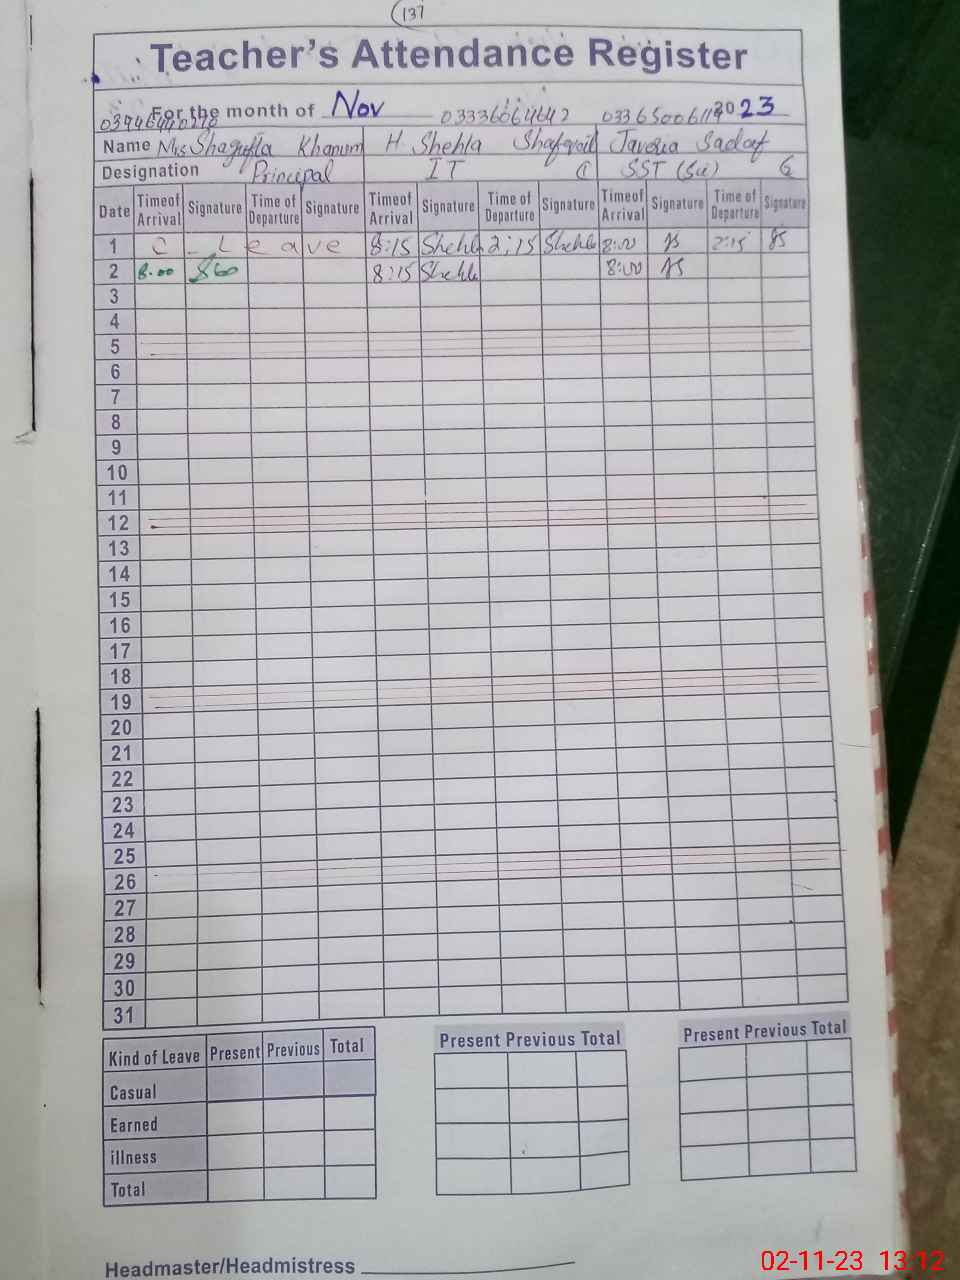 137
Teacher's Attendance Register
For the month of Nov 2023
03336064642
Name Mrs Shagufta Khanum H. Shehla Javeria Sadaf
Designation Principal IT SST (Sci)
Date Timeof Arrival Signature Time of Departure Signature Timeof Arrival Signature Time of Departure Signature Timeof Arrival Signature Time of Departure Signature
1 C - Leave 8:15 Shehla 2:15 Shehla 8:00 JS 2:15 JS
2 8.00 8:15 Shehla 8:00 JS
3
4
5
6
7
8
9
10
11
12
13
14
15
16
17
18
19
20
21
22
23
24
25
26
27
28
29
30
31
Kind of Leave Present Previous Total Present Previous Total Present Previous Total
Casual
Earned
illness
Total
Headmaster/Headmistress
02-11-23 13:12